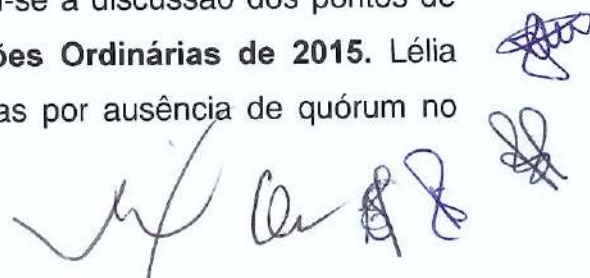 se à discussão dos pontos de
ões Ordinárias de 2015. Lélia
as por ausência de quórum no